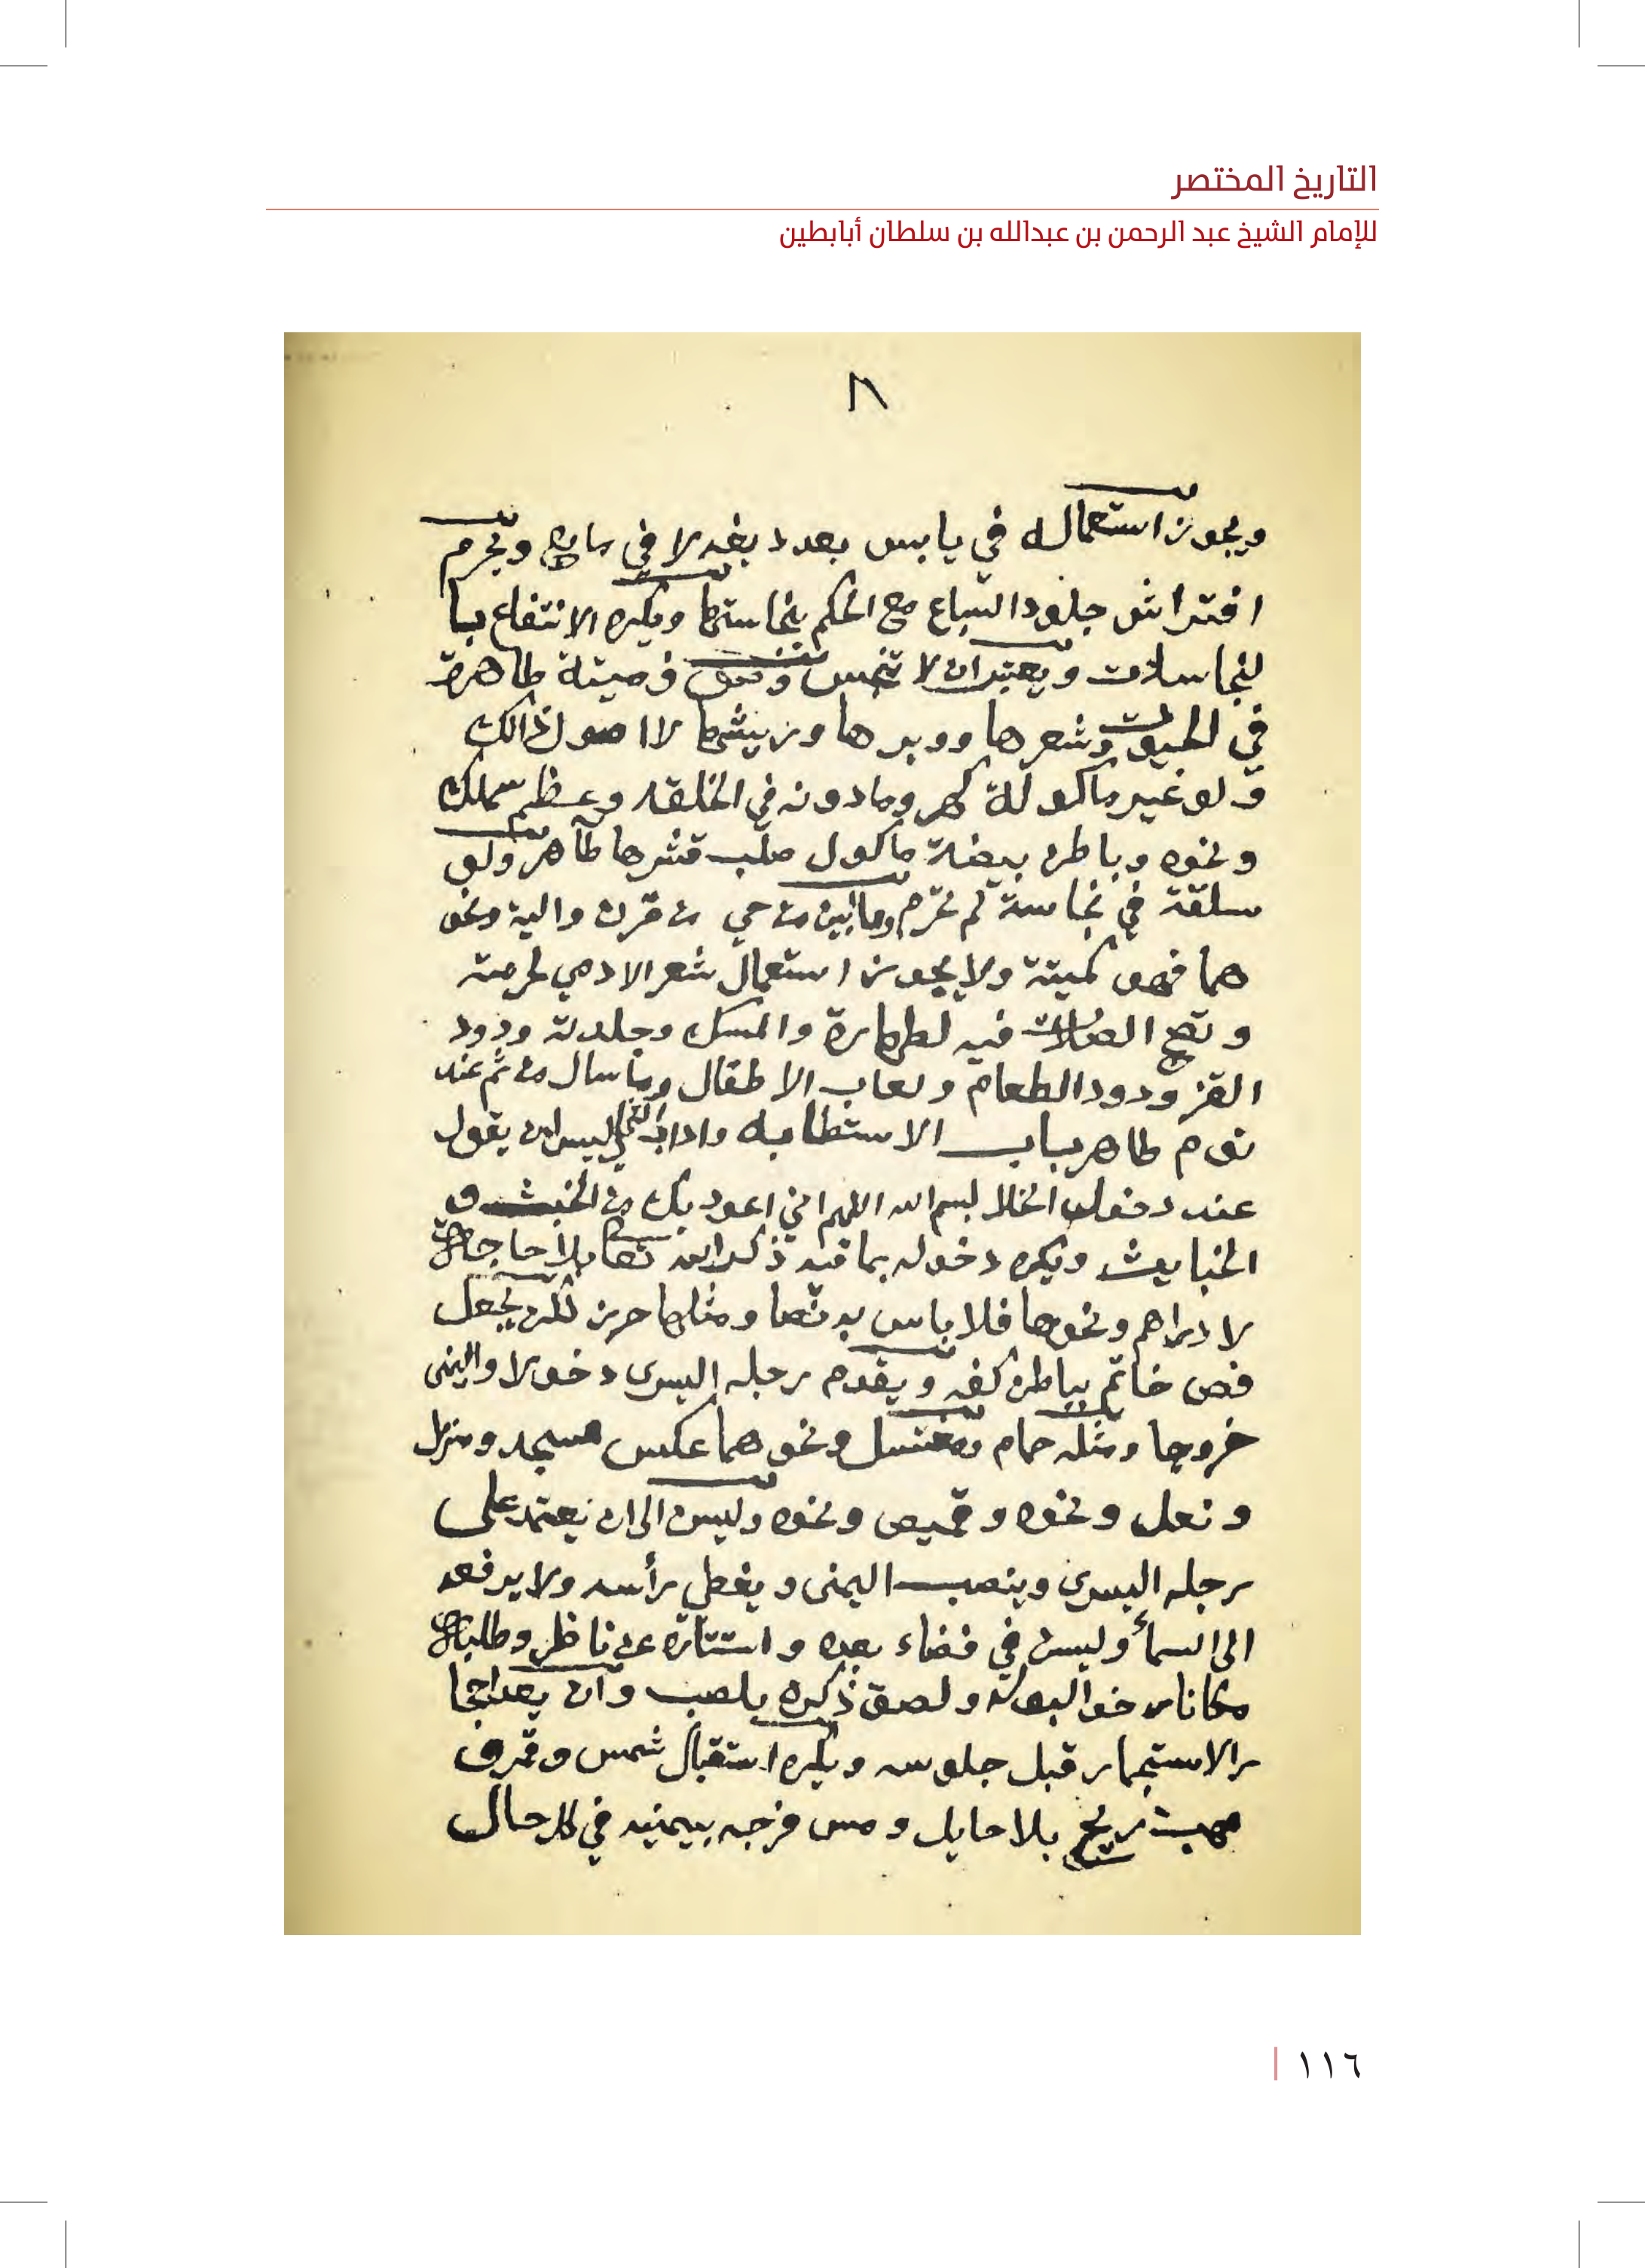 التاريخ المختصر
للإمام الشيخ عبد الرحمن بن عبدالله بن سلطان أبابطين
٨
ويجوز استعماله في يابس بعد دبغه لا في مايع ويحرم
افتراش جلود السباع مع الحكم بنجاستها ويكره الانتفاع با
لنجاسات ويعتبر ان لا تنجس وصوف ميتة طاهرة
في الحيوة وشعرها ووبرها وريشها لا اصول ذالك
ولو غير ماكولة كهر وما دونه في الخلقه وعظم سمك
ونحوه وباطن بيضة ماكول صلب قشرها طاهر ولو
سلقة في نجاسة لم تحرم وما ابين من حي من قرن والية ونحو
هما فهو كميتة ولا يجوز استعمال شعر الادمي لحرمته
وتصح الصلات فيه لطهارة والمسك وجلدته ودود
القز ودود الطعام ولعاب الاطفال وما سال من فم عند
نوم طاهر باب الاستطابه واداب التخلي ليسن ان يقول
عند دخول الخلا بسم الله اللهم اني اعوذ بك من الخبث و
الخبايث ويكره دخوله بما فيه ذكر الله تعا بلا حاجة
لا دراهم ونحوها فلا باس به نصا ومثلها حرز لكن يجعل
فص خاتم بباطن كفه ويقدم رجله اليسرى دخولا واليمنى
خروجا ومثله حمام ومغتسل ونحوهما عكس مسجد ومنزل
ونعل ونحوه وقميص ونحوه وليسن الى ان يعتمد على
رجله اليسرى وينصب اليمنى ويغطي رأسه ولا يرفعه
الى السمأ وليسن في فضاء بعده واستتاره عن ناظر وطلبه
مكانا رخوا لبوله ولصق ذكره بلصب وان يعد احجا
ر الاستجمار قبل جلوسه ويكره استقبال شمس وقمر و
مهب ريح بلا حايل ومس فرجه بيمنيه في كل حال
١١٦